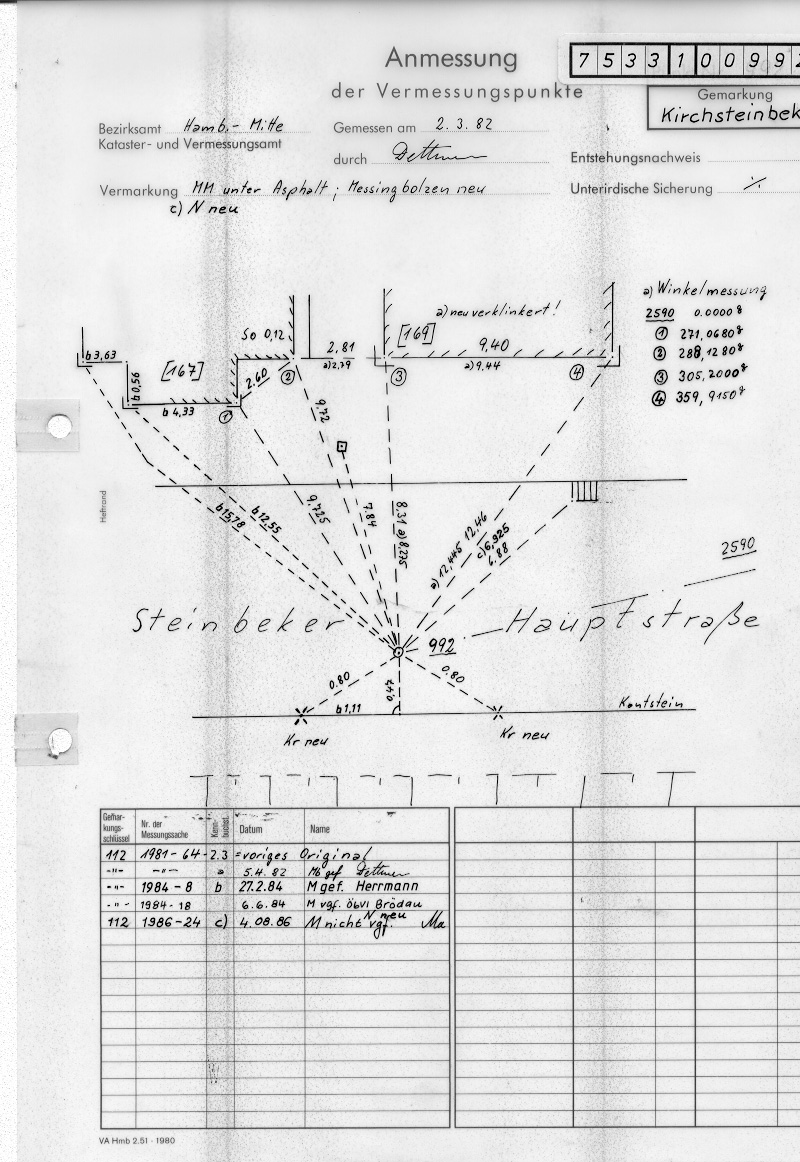 Anmessung
der Vermessungspunkte
7 5 3 3 1 0 0 9 9 2
Gemarkung
Kirchsteinbek
Bezirksamt Hamb.- Mitte
Kataster- und Vermessungsamt
Gemessen am 2.3.82
durch Dettmer
Entstehungsnachweis
Vermarkung MM unter Asphalt; Messingbolzen neu
c) N neu
Unterirdische Sicherung ·/.
a) Winkelmessung
2590 0.0000 g
① 271,0680 g
② 288,1280 g
③ 305,2000 g
④ 359,9150 g
a) neu verklinkert!
So 0,12
[169]
2,81
a) 2,79
9,40
a) 9,44
b 3,63
[167]
b 0,56
2.60
②
③
④
b 4,33
①
9,72
Heftrand
b 15,78
b 12,55
9,725
7.84
8,31 a) 8,275
a) 12,445 12,46
c) 6,925
6.88
2590
Steinbeker Hauptstraße
992
0.80
0,47
0.80
b 1,11
Kantstein
Kr neu
Kr neu
Gemar-
kungs-
schlüssel
Nr. der
Messungssache
Kenn-
buchst.
Datum
Name
112 1981-64-2.3 =voriges Original
-"- -"- a 5.4.82 Mb gef Dettmer
-"- 1984-8 b 27.2.84 M gef. Herrmann
-"- 1984-18 6.6.84 M vgf. öbVI Brödau
112 1986-24 c) 4.08.86 M nicht vgf. N neu Ma
VA Hmb 2.51 - 1980